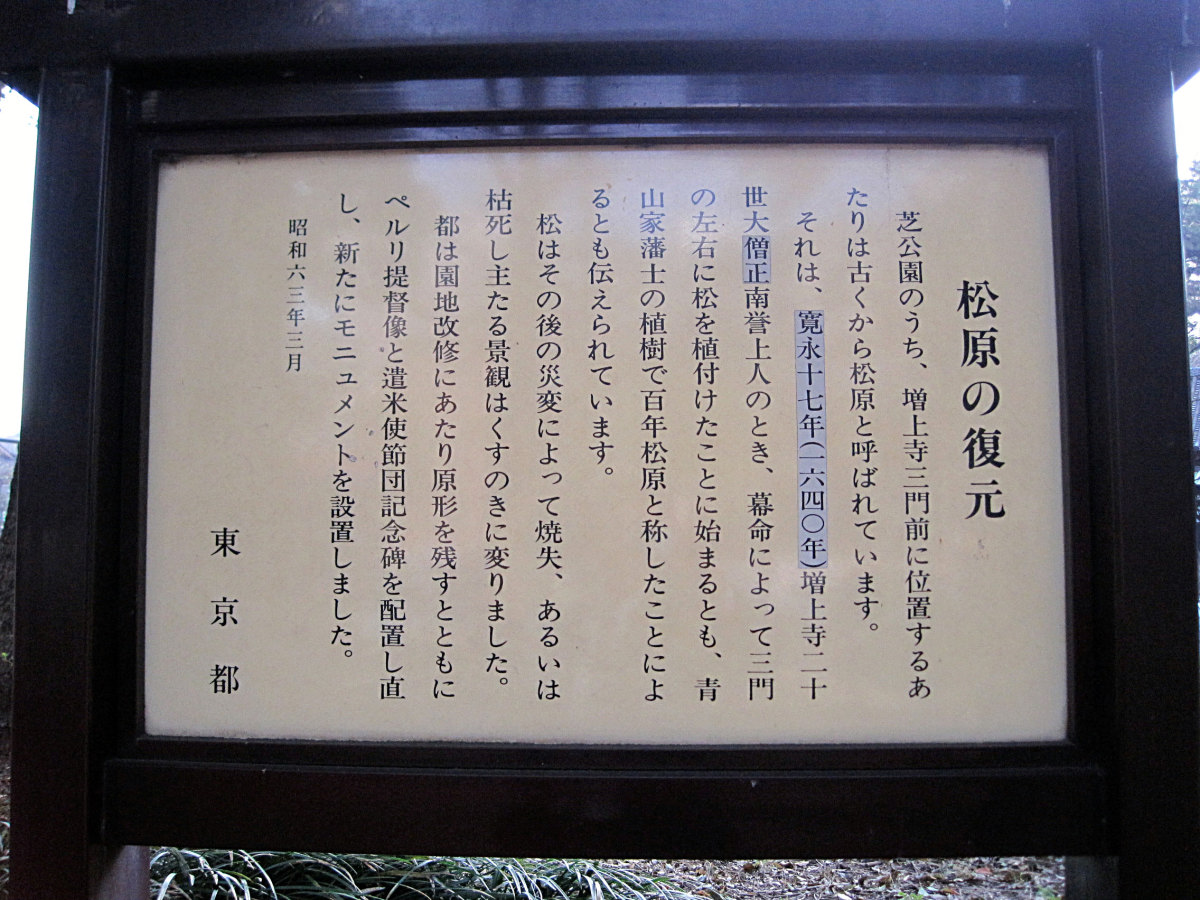 松原の復元
芝公園のうち、増上寺三門前に位置するあ
たりは古くから松原と呼ばれています。
それは、寛永十七年(一六四〇年)増上寺二十
世大僧正南誉上人のとき、幕命によって三門
の左右に松を植付けたことに始まるとも、青
山家藩士の植樹で百年松原と称したことによ
るとも伝えられています。
松はその後の災変によって焼失、あるいは
枯死し主たる景観はくすのきに変りました。
都は園地改修にあたり原形を残すとともに
ペルリ提督像と遣米使節団記念碑を配置し直
し、新たにモニュメントを設置しました。
昭和六三年三月
東京都